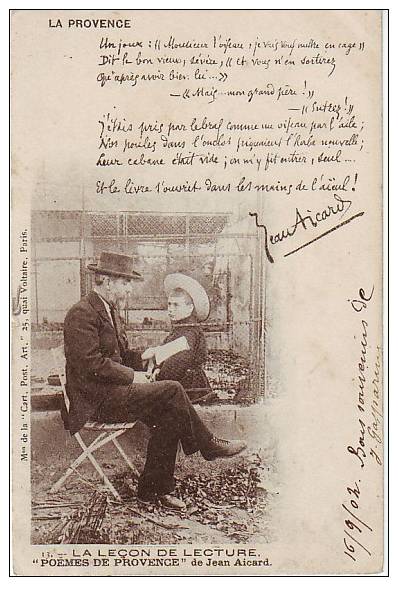 LA PROVENCE
Un jour : « Monsieur l'oiseau, je vais vous mettre en cage »
Dit le bon vieux, sévère, « et vous n'en sortirez
Qu'après avoir bien lu ...»
— « Mais... mon grand père ! »
— « Entrez ! »
J'étais pris par le bras comme un oiseau par l'aile ;
Nos poules dans l'enclos piquaient l'herbe nouvelle ;
Leur cabane était vide ; on m'y fit entrer, seul ....
Et le livre s'ouvrit dans les mains de l'aïeul !
Jean Aicard
Mon de la "Cart. Post. Art." 25, quai Voltaire, Paris.
16/9/02. Bons souvenirs de
J Gasparin
13. — LA LEÇON DE LECTURE.
"POÈMES DE PROVENCE" de Jean Aicard.